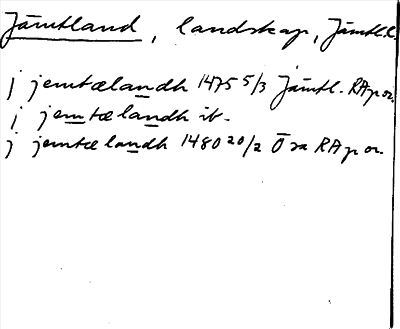 Jämtland, landskap, Jämtl.l.
j jemtælandh 1475 5/3 Jämtl. RAp or.
j jemtælandh ib.
j jemtælandh 1480 20/2 Ö xx RAp or.